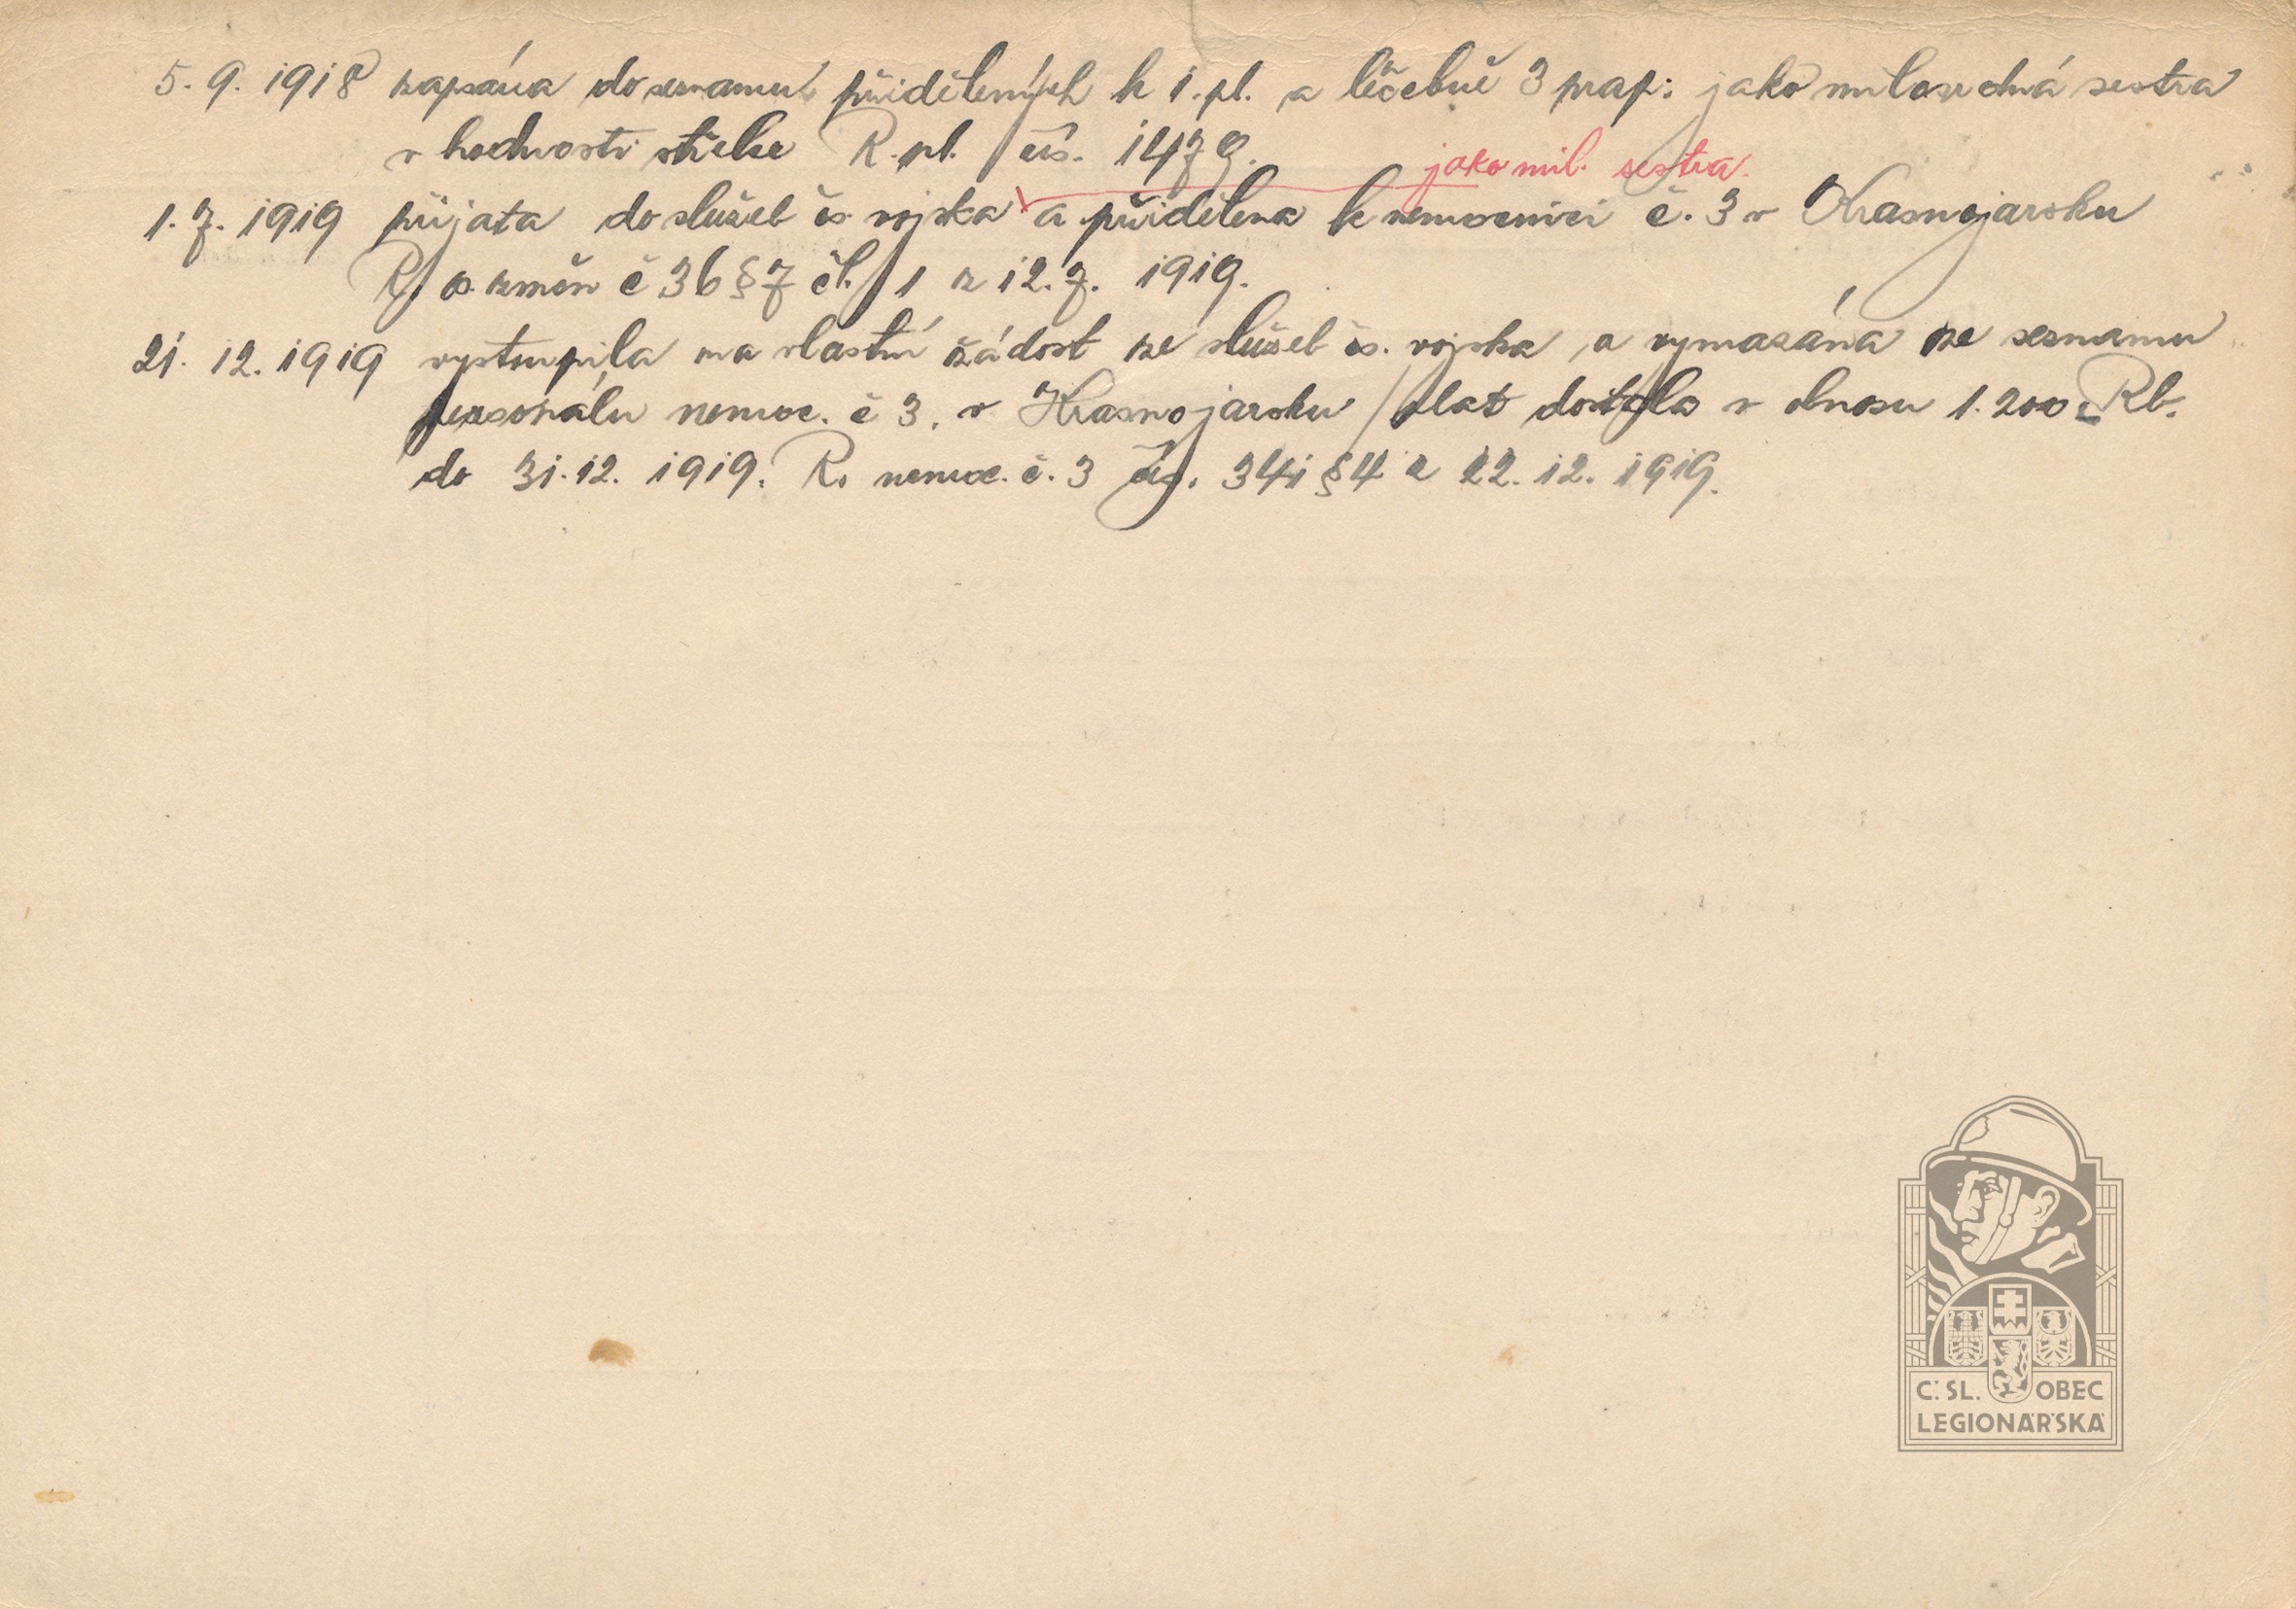 5. 9. 1918 zapsána do seznamu přidělených k 1. pl. a léčebně 3 prap: jako milosrdná sestra
v hodnosti střelce R. pl. čís. 1479.
jako mil. sestra.
1. 7. 1919 přijata do služeb čs. vojska a přidělena k nemocnici č. 3 v Krasnojarsku
R. o. změn č 36 § 7 čl. 1 z 12. 7. 1919.
21. 12. 1919 vystoupila na vlastní žádost ze služeb čs. vojska, a vymazána ze seznamu
personálu nemoc. č 3. v Krasnojarsku / plat dostala v obnosu 1.200 Rb.
do 31. 12. 1919. R. nemoc. č. 3 čís. 341 § 4 z 22. 12. 1919.
Č. SL. OBEC
LEGIONÁŘSKÁ